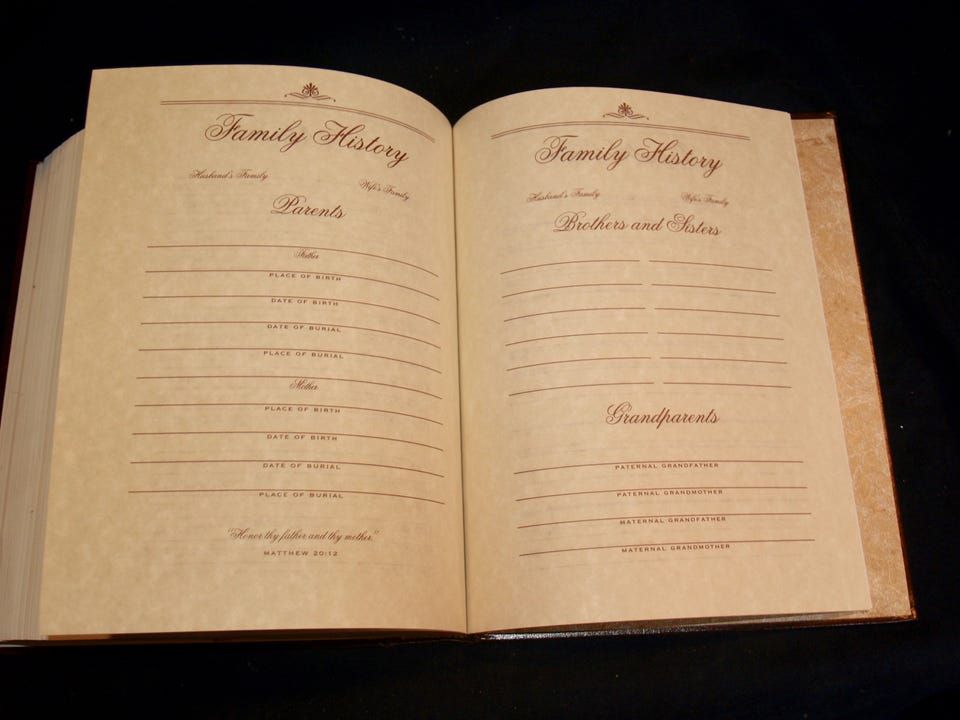 Family History
Husband's Family
Wife's Family
Parents
Father
PLACE OF BIRTH
DATE OF BIRTH
DATE OF BURIAL
PLACE OF BURIAL
Mother
PLACE OF BIRTH
DATE OF BIRTH
DATE OF BURIAL
PLACE OF BURIAL
"Honor thy father and thy mother."
MATTHEW 20:12
Family History
Husband's Family
Wife's Family
Brothers and Sisters
Grandparents
PATERNAL GRANDFATHER
PATERNAL GRANDMOTHER
MATERNAL GRANDFATHER
MATERNAL GRANDMOTHER